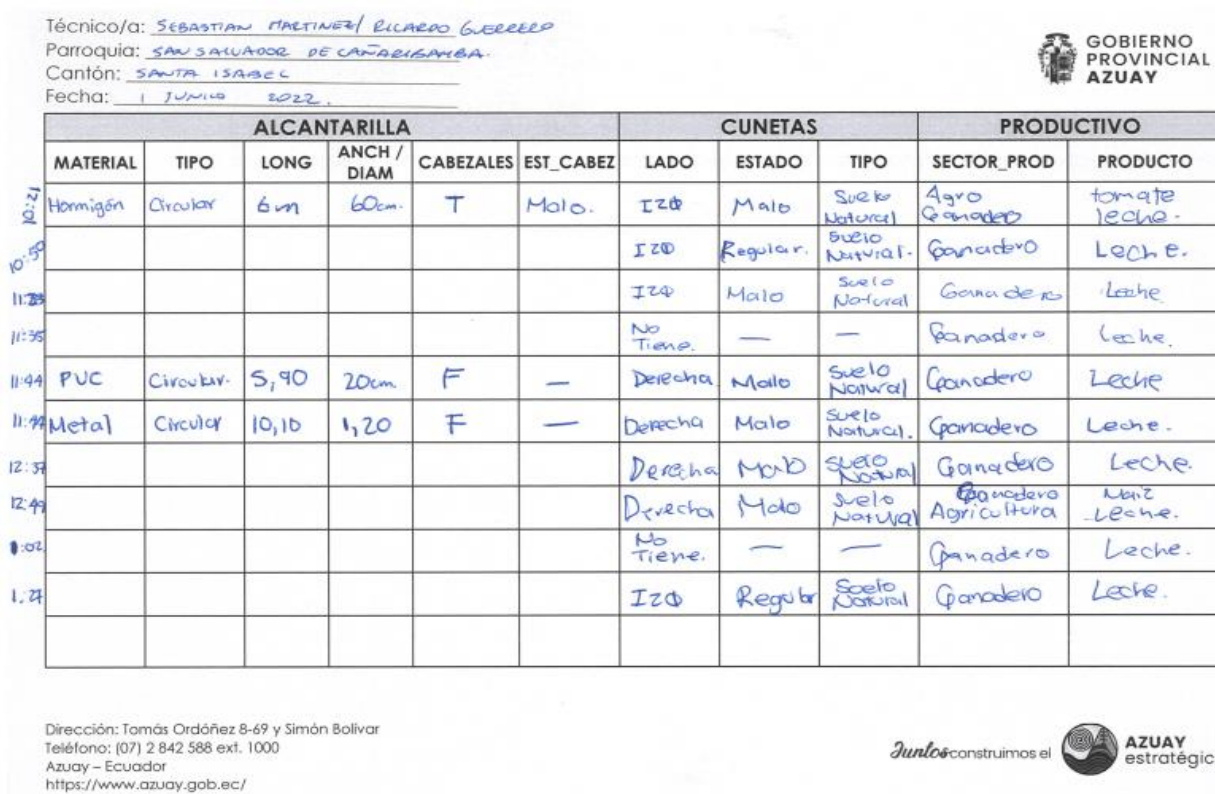 Técnico/a: SEBASTIAN MARTINEZ/ RICARDO GUERRERO
Parroquia: SAN SALVADOR DE CAÑARIBAMBA.
Cantón: SANTA ISABEL
Fecha: 1 JUNIO 2022.
GOBIERNO
PROVINCIAL
AZUAY
ALCANTARILLA CUNETAS PRODUCTIVO
MATERIAL TIPO LONG ANCH / DIAM CABEZALES EST_CABEZ LADO ESTADO TIPO SECTOR_PROD PRODUCTO
12:01 Hormigón Circular 6m 60cm. T Malo. IZQ Malo Suelo Natural Agro Ganadero tomate leche.
10:50 IZQ Regular. Suelo Natural. Ganadero Leche.
IZQ Malo Suelo Natural Ganadero Leche
11:35 No Tiene. — — Ganadero Leche.
11:44 PVC Circular. 5,90 20cm. F — Derecha Malo Suelo Natural Ganadero Leche
Metal Circular 10,10 1,20 F — Derecha Malo Suelo Natural. Ganadero Leche.
12:37 Derecha Malo Suelo Natural Ganadero Leche.
12:49 Derecha Malo Suelo Natural Ganadero Agricultura Maiz Leche.
No Tiene. — — Ganadero Leche.
IZQ Regular Suelo Natural Ganadero Leche.
Dirección: Tomás Ordóñez 8-69 y Simón Bolívar
Teléfono: (07) 2 842 588 ext. 1000
Azuay – Ecuador
https://www.azuay.gob.ec/
Juntos construimos el
AZUAY
estratégic